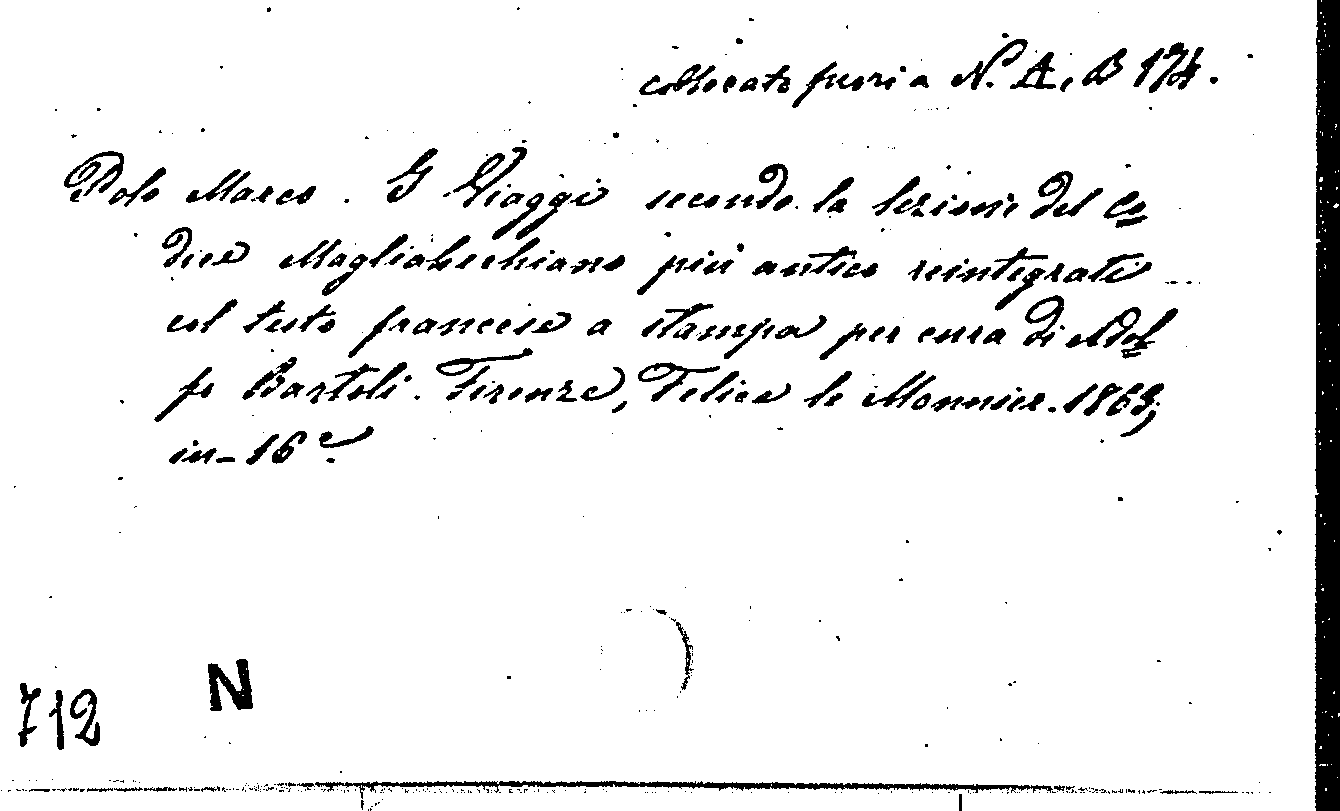 collocato fuori a N. A. B 174.
Polo Marco. I Viaggi secondo la lezione del Co=
dice Magliabechiano più antico reintegrati
col testo francese a stampa per cura di Adol=
fo Bartoli. Firenze, Felice le Monnier. 1863,
in-16º.
712 N